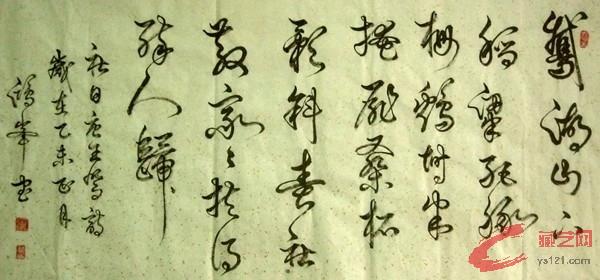 鵝湖山下
稻粱肥豚
栅鷄塒半
掩扉桑柘
影斜春社
散家々扶得
醉人歸
社日唐王駕詩
歲在乙未正月
峯书
艺网
ys121.com